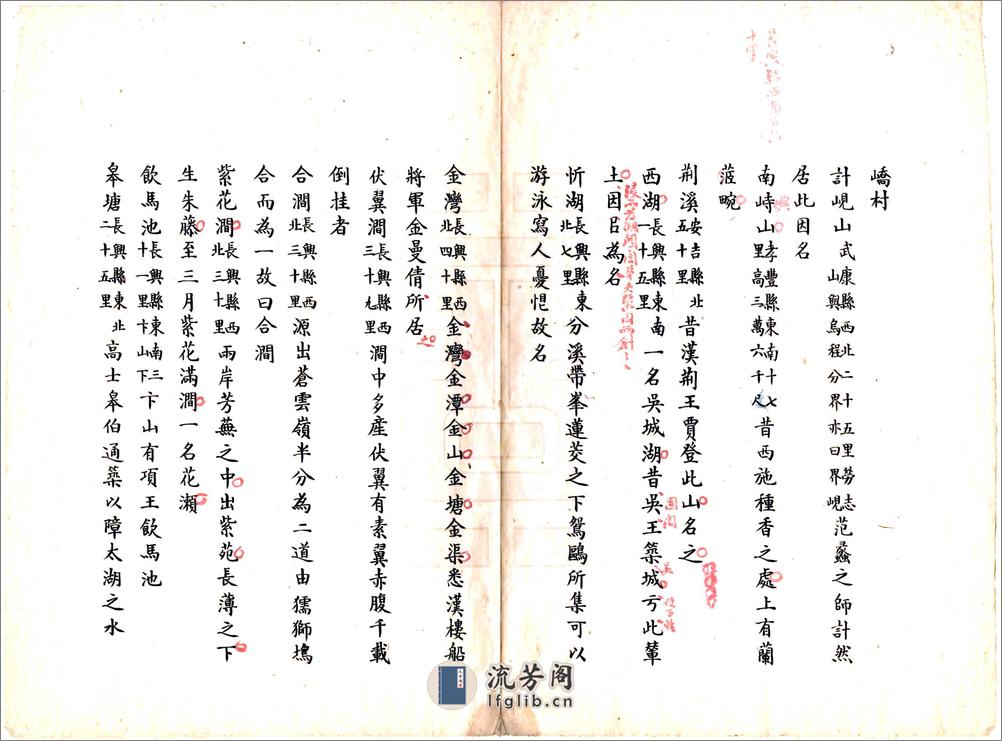 嶠村
計峴山武康縣西北二十五里勞志山與烏程分界亦曰界峴范蠡之師計然
居此因名
南峙山孝豐縣東南十七里高三萬六千尺昔西施種香之處上有蘭
蒞畹
荆溪安吉縣北五十里昔漢荆王賈登此山名之
西湖長興縣東南一十五里一名吳城湖昔吳王築城亏此輦
土因㠯為名
忻湖長興縣東北七里分溪帶峯蓮茭之下鴛鷗所集可以
游泳寫人憂悒故名
金灣長興縣西北四十里金灣金潭金山金塘金渠悉漢樓船
將軍金曼倩所居
伏翼澗長興縣西三十九里澗中多產伏翼有素翼赤腹千載
倒挂者
合澗長興縣西北三十里源出蒼雲嶺半分為二道由獳獅塢
合而為一故曰合澗
紫花澗長興縣西北三十里兩岸芳蕪之中出紫苑長薄之下
生朱藤至三月紫花滿澗一名花瀨
飲馬池長興縣東南三十一里卞山下卞山有項王飲馬池
皋塘長興縣東北二十五里高士皋伯通築以障太湖之水
流芳阁
lfglib.cn